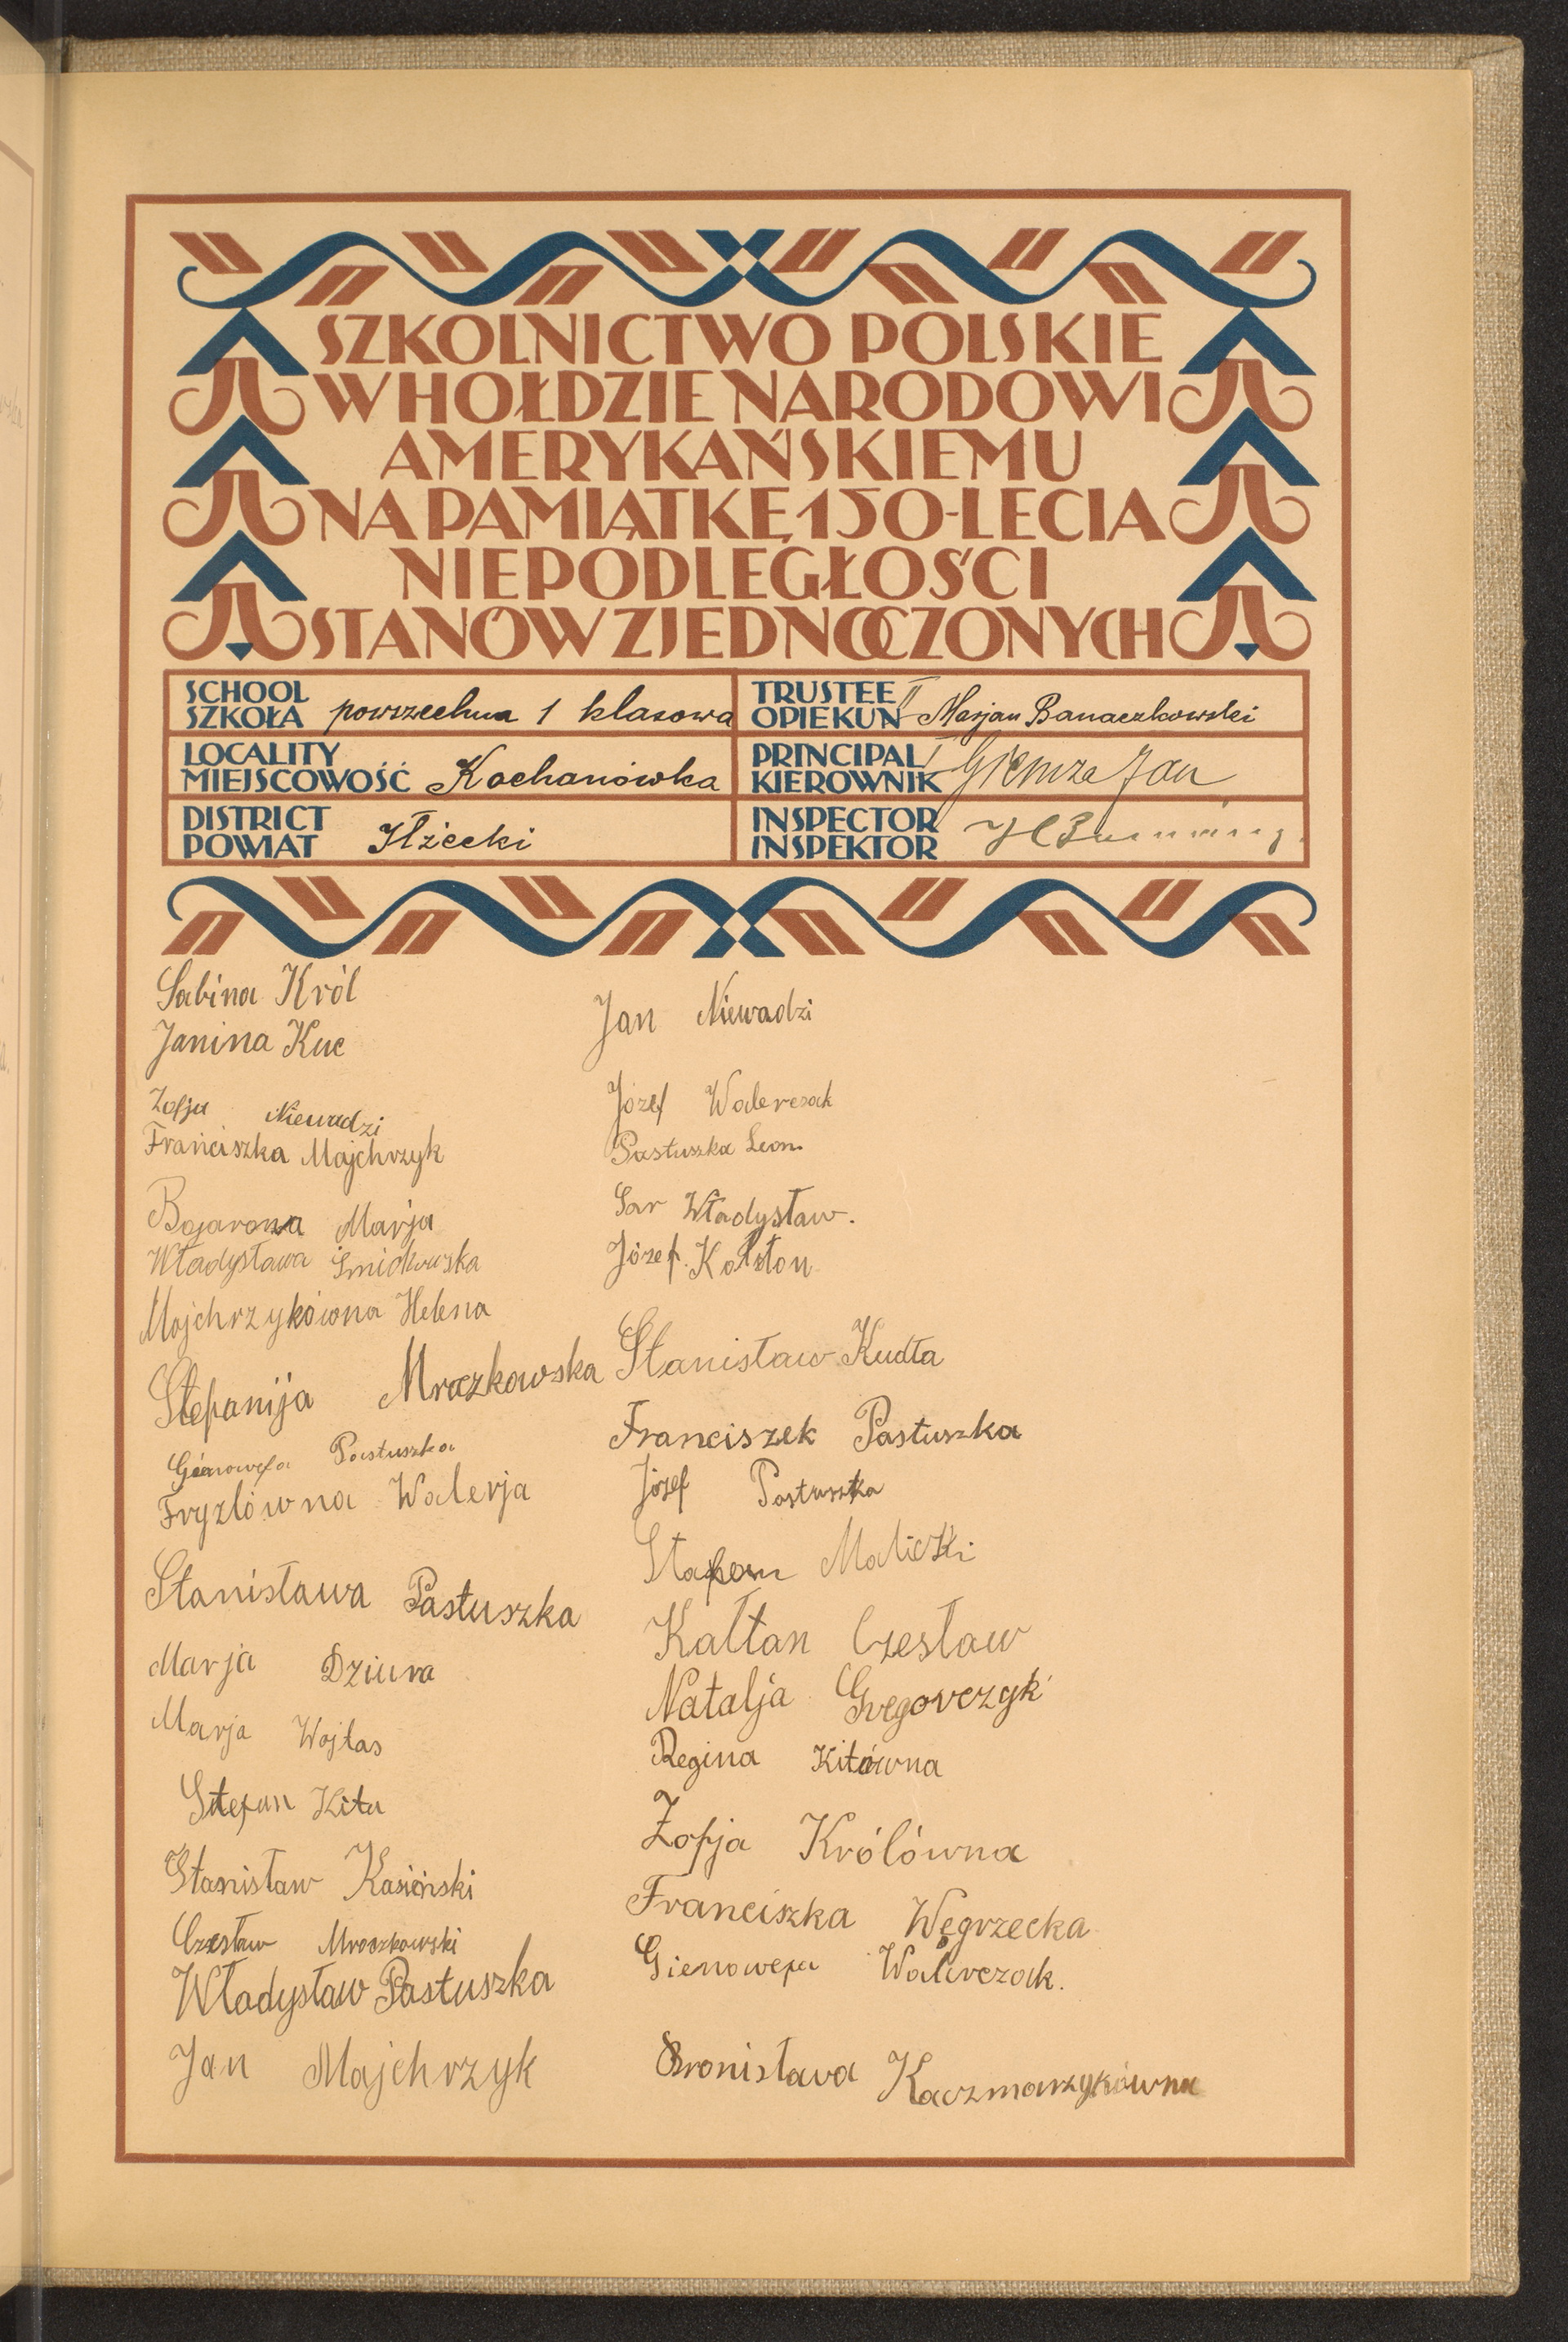 SZKOLNICTWO POLSKIE
W HOŁDZIE NARODOWI
AMERYKAŃSKIEMU
NA PAMIĄTKĘ 150-LECIA
NIEPODLEGŁOŚCI
STANÓW ZJEDNOCZONYCH
SCHOOL
SZKOŁA powszechna 1 klasowa
TRUSTEE
OPIEKUN Marjan Banaczkowski
LOCALITY
MIEJSCOWOŚĆ Kochanówka
PRINCIPAL
KIEROWNIK Giemza Jan
DISTRICT
POWIAT Iłżecki
INSPECTOR
INSPEKTOR
Sabina Król
Janina Kuc
Zofja Niewadzi
Franciszka Majchrzyk
Bojarowa Marja
Władysława Śmiotkowska
Majchrzykówna Helena
Stefanija Mroczkowska
Gienowefa Pastuszka
Fryzlówna Walerja
Stanisława Pastuszka
Marja Dziura
Marja Wojtas
Stefan Kita
Stanisław Kasiński
Czesław Mroczkowski
Władysław Pastuszka
Jan Majchrzyk
Jan Niewadzi
Józef Walerczak
Pastuszka Leon.
Sar Władysław.
Józef
Stanisław Kudła
Franciszek Pastuszka
Józef Pastuszka
Malicki
Kałtan Czesław
Natalja Gregorczyk
Regina Kitówna
Zofja Królówna
Franciszka Węgrzecka
Gienowefa Walerczak.
Bronisława Kaczmarzykówna